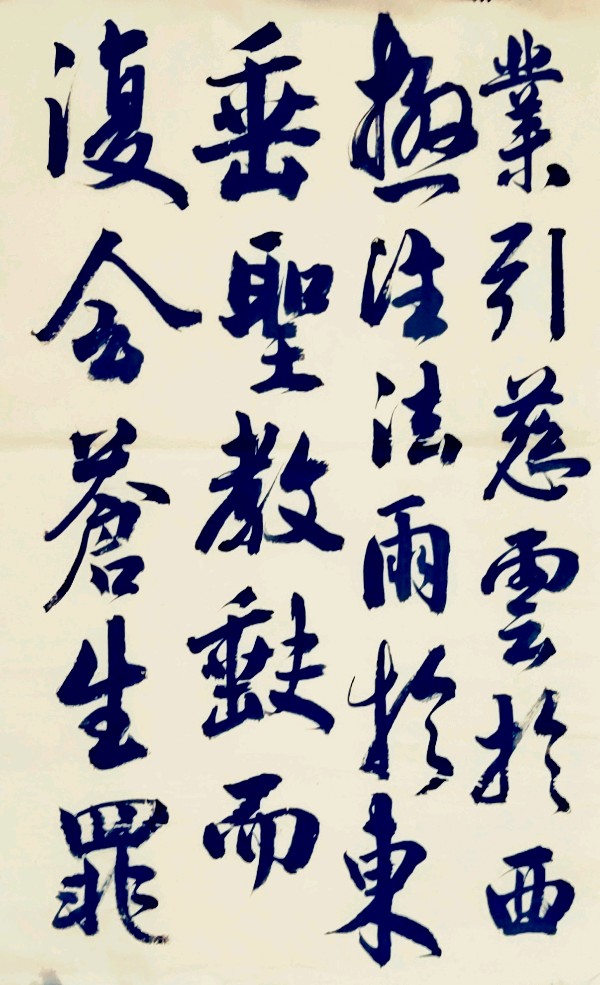 業引慈雲於西
極注法雨於東
垂聖教缺而
復全蒼生罪